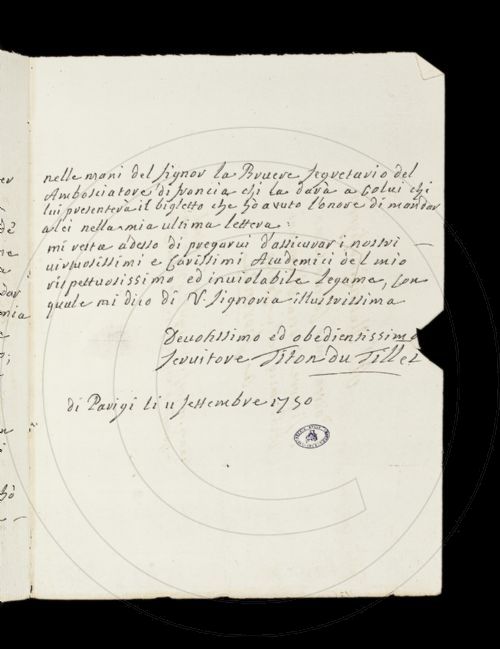 nelle mani del signor la Bruere segretario del
Ambasciatore di francia chi la dara a Colui chi
lui presentera il biglietto che ho avuto l'onore di mandar
a lei nella mia ultima lettera:
mi resta adesso di pregarvi d'assicurar i nostri
virtuosissimi e Carissimi Academici del mio
rispettuosissimo ed inviolabile Legame, Con
quale mi dico di V. Signoria illustrissima
Devotissimo ed obedientissimo
servitore Titon du Tillet
di Parigi li 11 settembre 1750